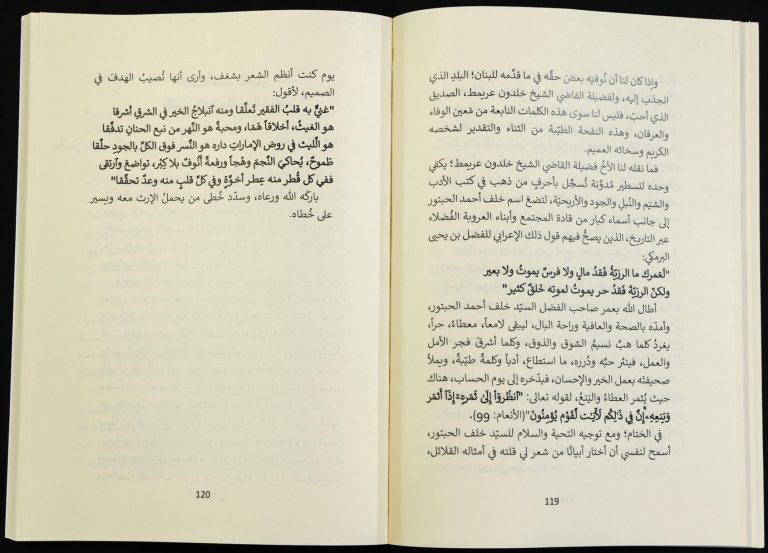 وإذا كان لنا أن نُوفيَه بعضَ حقِّه في ما قدَّمه للبنان؛ البلدِ الذي
انجذب إليه، ولفضيلة القاضي الشيخ خلدون عريمط، الصديق
الذي أحبّ، فليس لنا سوى هذه الكلمات النابعة من مَعين الوفاء
والعرفان، وهذه النفحة الطيّبة من الثناء والتقدير لشخصه
الكريم وسخائه العميم.
فما نقله لنا الأخُ فضيلة القاضي الشيخ خلدون عريمط؛ يكفي
وحده لتسطير مُدوَّنة تُسجَّل بأحرفٍ من ذهب في كتب الأدب
والشيَم والنُبلِ والجود والأريحيّة، لتضعَ اسم خلف أحمد الحبتور
إلى جانب أسماء كبار من قادة المجتمع وأبناء العروبة الفُضلاء
عبر التاريخ، الذين يصحُّ فيهم قول ذلك الإعرابي للفضل بن يحيى
البرمكي:
"لَعَمرك ما الرزيّةُ فَقدُ مالٍ ولا فرسٌ يموتُ ولا بعير
ولكنّ الرزيّةَ فَقدُ حر يموتُ لموتِه خَلقٌ كثير"
أطال الله بعمر صاحب الفضل السيّد خلف أحمد الحبتور،
وأمدّه بالصحة والعافية وراحة البال، ليبقى لامعاً، معطاءً، حراً،
يغردُ كلما هبَّ نسيمُ الشوق والذوق، وكلما أشرقَ فجر الأمل
والعمل، فينثر حبَّه ودُرره، ما استطاع، أدباً وكلمةً طيّبةً، ويملأ
صحيفتَه بعمل الخير والإحسان، فيدّخره إلى يوم الحساب، هناك
حيث يُثمر العطاءُ والتِنعُ، لقوله تعالى: "ٱنظُرُوٓا۟ إِلَىٰ ثَمَرِهِۦٓ إِذَآ أَثْمَرَ
وَيَنْعِهِۦٓ إِنَّ فِى ذَٰلِكُمْ لَـَٔايَٰتٍ لِّقَوْمٍ يُؤْمِنُونَ"(الأنعام: 99).
في الختام؛ ومع توجيه التحية والسلام للسيّد خلف الحبتور،
أسمح لنفسي أن أختار أبياتًا من شعر لي قلته في أمثاله القلائل،
119
يوم كنت أنظم الشعر بشغف، وأرى أنها تُصيبُ الهدفَ في
الصميم، لأقول:
"غنيٌّ به قلبُ الفقير تَعلّقا ومنه آنبلاجُ الخير في الشرقِ أشرقا
هو الغيثُ، أخلاقاً هَمَا، ومحبةً هو النّهر من نبع الحنانِ تدفّقا
هو الّليث في روض الإماراتِ داره هو النّسر فوق الكلّ بالجودِ حلّقا
طَموحٌ، يُحاكيَ النّجمَ وهْجاً ورفعةً أنُوفٌ بلا كِبْرٍ، تواضعَ وآرتقى
ففي كل قُطر منه عِطر أخوّةٍ وفي كلِّ قلبٍ منه وعدٌ تحقّقا"
باركَه الله ورعاه، وسدّد خُطى من يحملُ الإرث معه ويسير
على خُطاه.
120